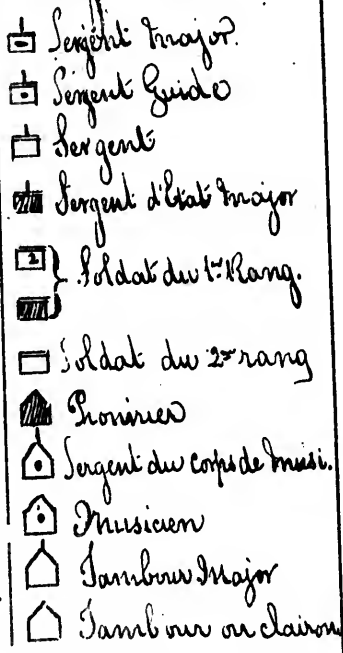 Sergent Major.
Sergent Guide
Sergent
Sergent d'Etat Major
2
Soldat du 1er Rang.
Soldat du 2e rang
Pionnier
Sergent du corps de musi.
Musicien
Tambour Major
Tambour ou clairon